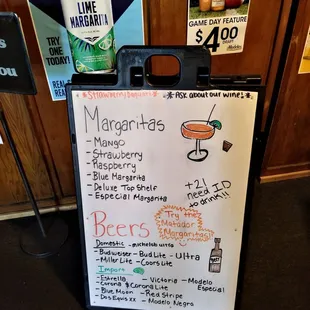 LIME
MARGARITA
TRY
ONE
TODAY!
GAME DAY
FEATURE
$4
Modelo
* ASK about our wine! *
Margaritas
- Mango
- Strawberry
- Raspberry
- Blue Margarita
- Deluxe Top Shelf
- Especial Margarita
+21
need ID
to drink!!
Beers
Try the
Matador
Margaritas!
Domestic - michelob ultra
- Budweiser - Bud Lite - Ultra
- Miller Lite - Coors Lite
Import
- Estrella - Victoria - Modelo Especial
- Corona & Corona Lite
- Blue Moon - Red Stripe
- Dos Equis xx - Modelo Negro